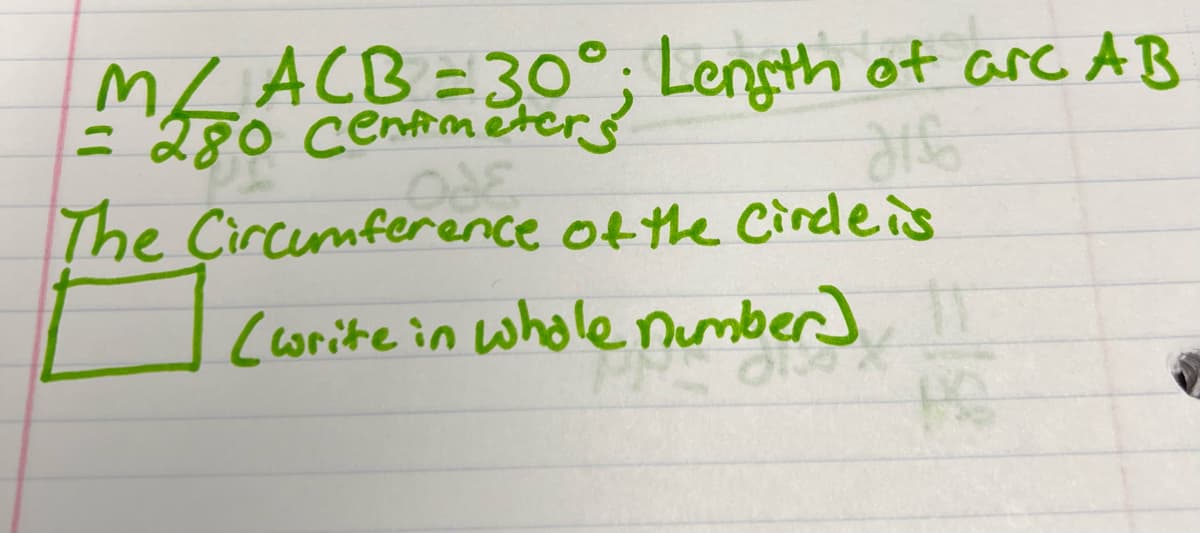 M∠ACB = 30°; Length of arc AB
= 280 centimeters
The Circumference of the Circle is
(write in whole number)